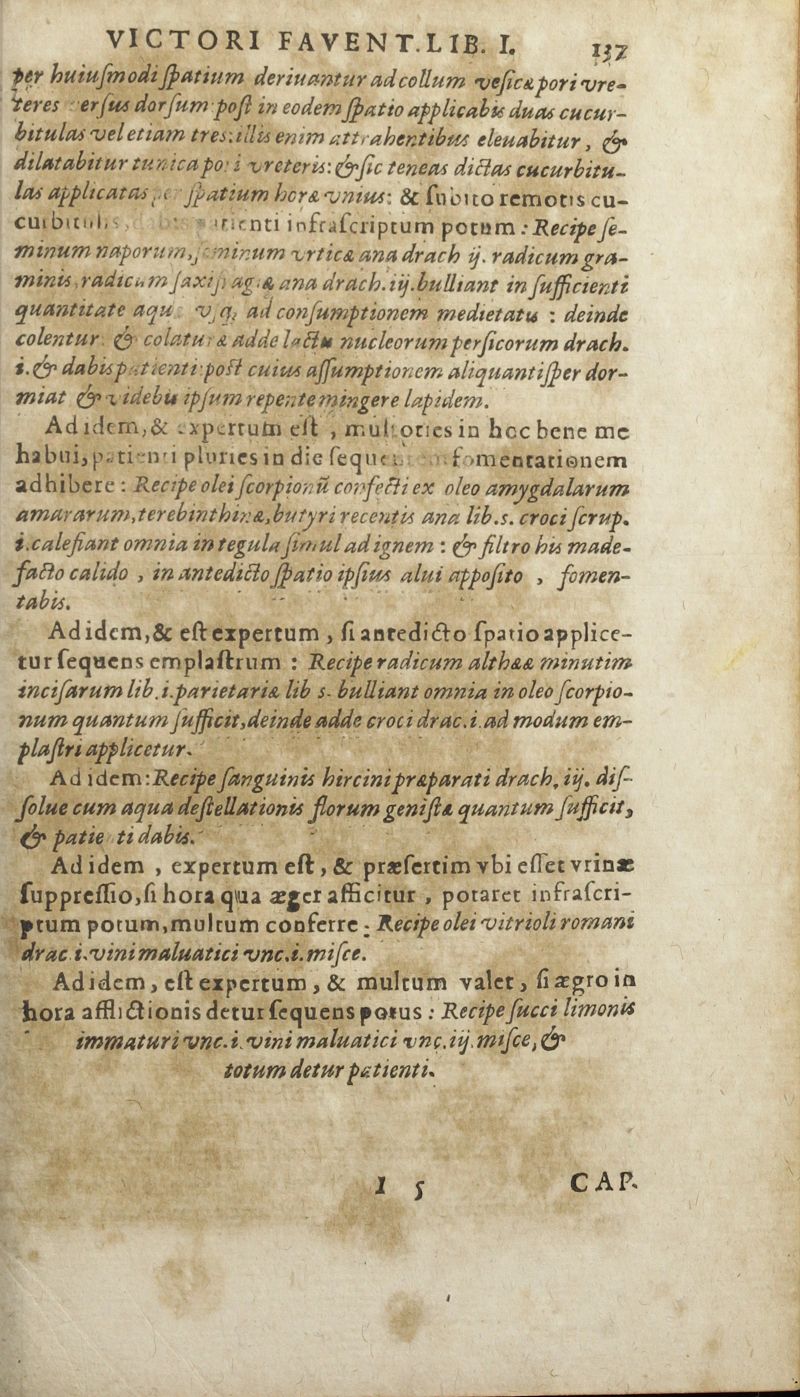 VICTORI FAVENT. LIB. I. 137
per huiuſmodi ſpatium deriuantur ad collum veſicæ pori vre-
teres erſus dorſum poſt in eodem ſpatio applicabis duas cucur-
bitulas vel etiam tres: illis enim attrahentibus eleuabitur, &
dilatabitur tunica pori vreteris: & ſic teneas dictas cucurbitu-
las applicatas ſpatium horæ vnius: & ſubito remotis cu-
cui bitulis infraſcriptum potum: Recipe ſe-
minum naporum, ſeminum vrticæ ana drach ij. radicum gra-
minis, radicum ſaxifragiæ ana drach. iij. bulliant in ſufficienti
quantitate aquæ ad conſumptionem medietatis : deinde
colentur & colaturæ adde lactis nucleorum perſicorum drach.
i. & dabis patienti poſt cuius aſſumptionem aliquantiſper dor-
miat & videbis ipſum repente mingere lapidem.
Ad idem, & expertum eſt, multoties in hoc bene me
habui, patienti pluries in die ſequentem fomentationem
adhibere: Recipe olei ſcorpionũ confecti ex oleo amygdalarum
amararum, terebinthinæ, butyri recentis ana lib. s. croci ſcrup.
i. calefiant omnia in tegula ſimul ad ignem : & filtro his made-
facto calido , in antedicto ſpatio ipſius alui appoſito , fomen-
tabis.
Ad idem, & eſt expertum, ſi antedicto ſpatio applice-
tur ſequens emplaſtrum : Recipe radicum altheæ minutim
inciſarum lib. i. parietariæ lib s. bulliant omnia in oleo ſcorpio-
num quantum ſufficit, deinde adde croci drac. i. ad modum em-
plaſtri applicetur.
Ad idem: Recipe ſanguinis hircini præparati drach, iij. diſ-
ſolue cum aqua deſtellationis florum geniſtæ quantum ſufficit,
& patie ti dabis.
Ad idem , expertum eſt, & præſertim vbi eſſet vrinæ
ſuppreſſio, ſi hora qua æger afficitur , potaret infraſcri-
ptum potum, multum conferre: Recipe olei vitrioli romani
drac i. vini maluatici vnc. i. miſce.
Ad idem, eſt expertum, & multum valet, ſi ægro in
hora afflictionis detur ſequens potus: Recipe ſucci limonis
immaturi vnc. i. vini maluatici vnc. iij. miſce, &
totum detur patienti.
I 5 CAP.